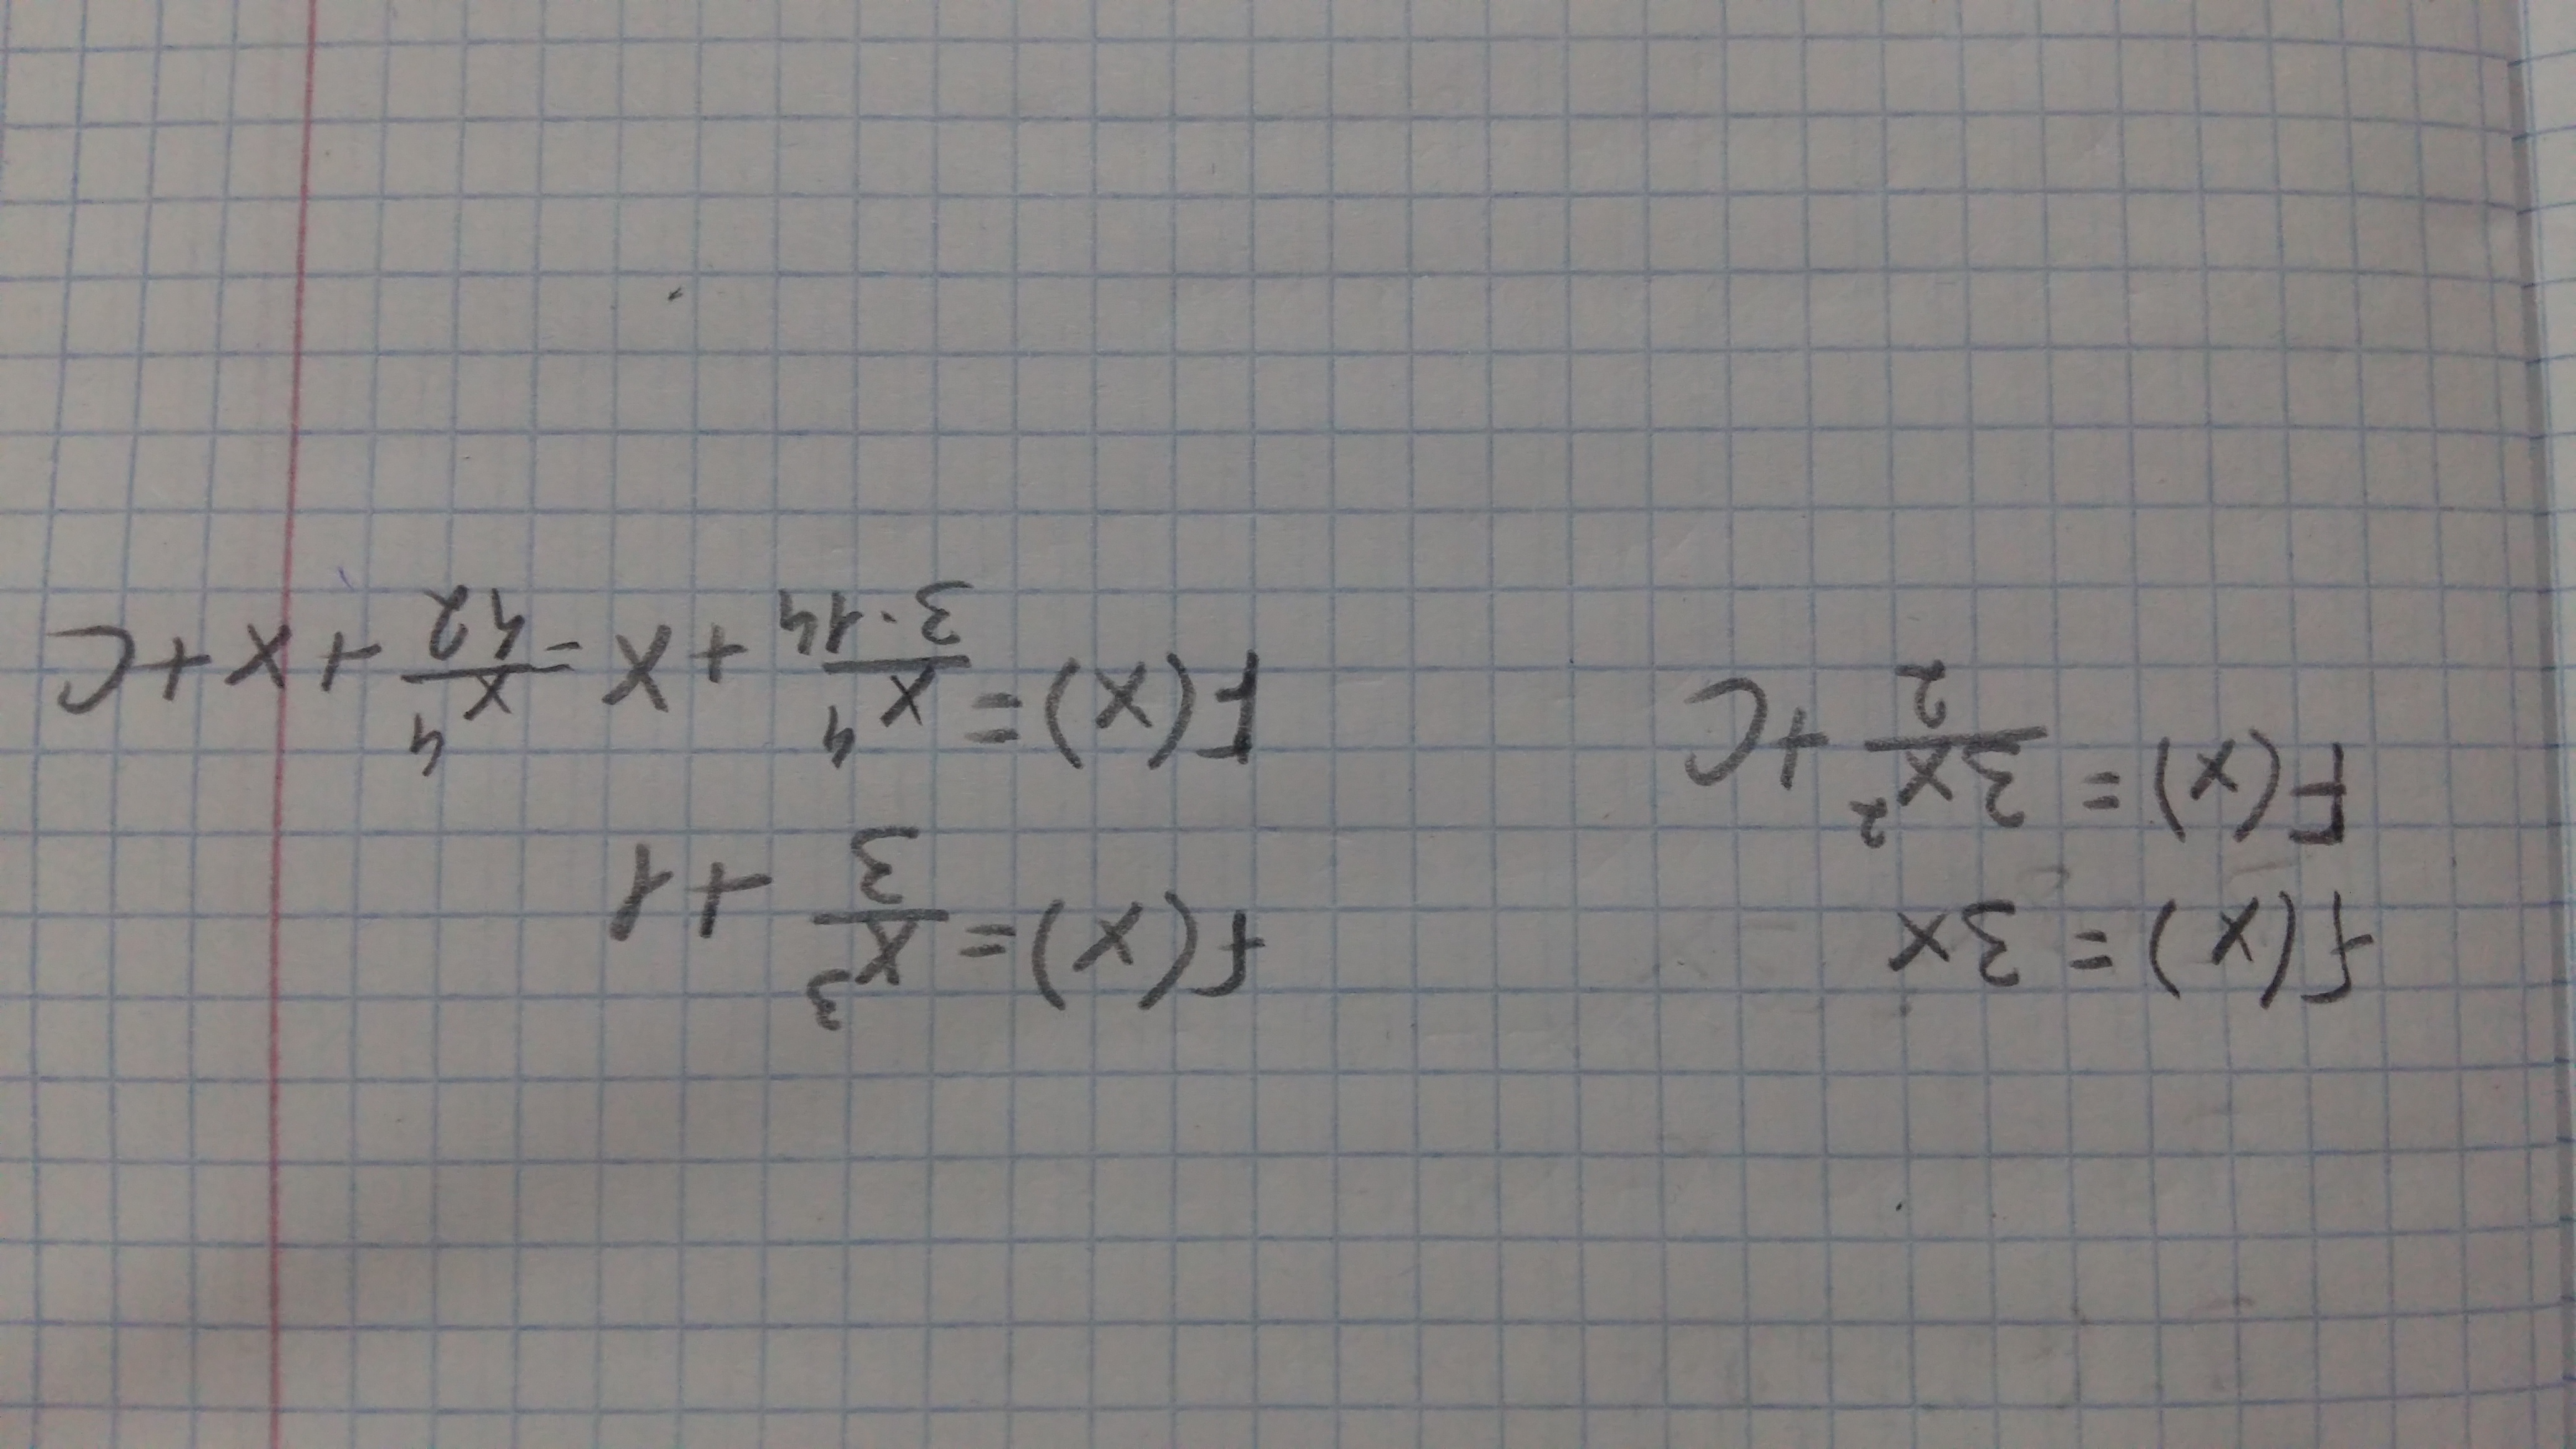 f(x) = 3x
F(x) = 3x²/2 + C
f(x) = x³/3 + 1
F(x) = x⁴/3·14 + x = x⁴/42 + x + C